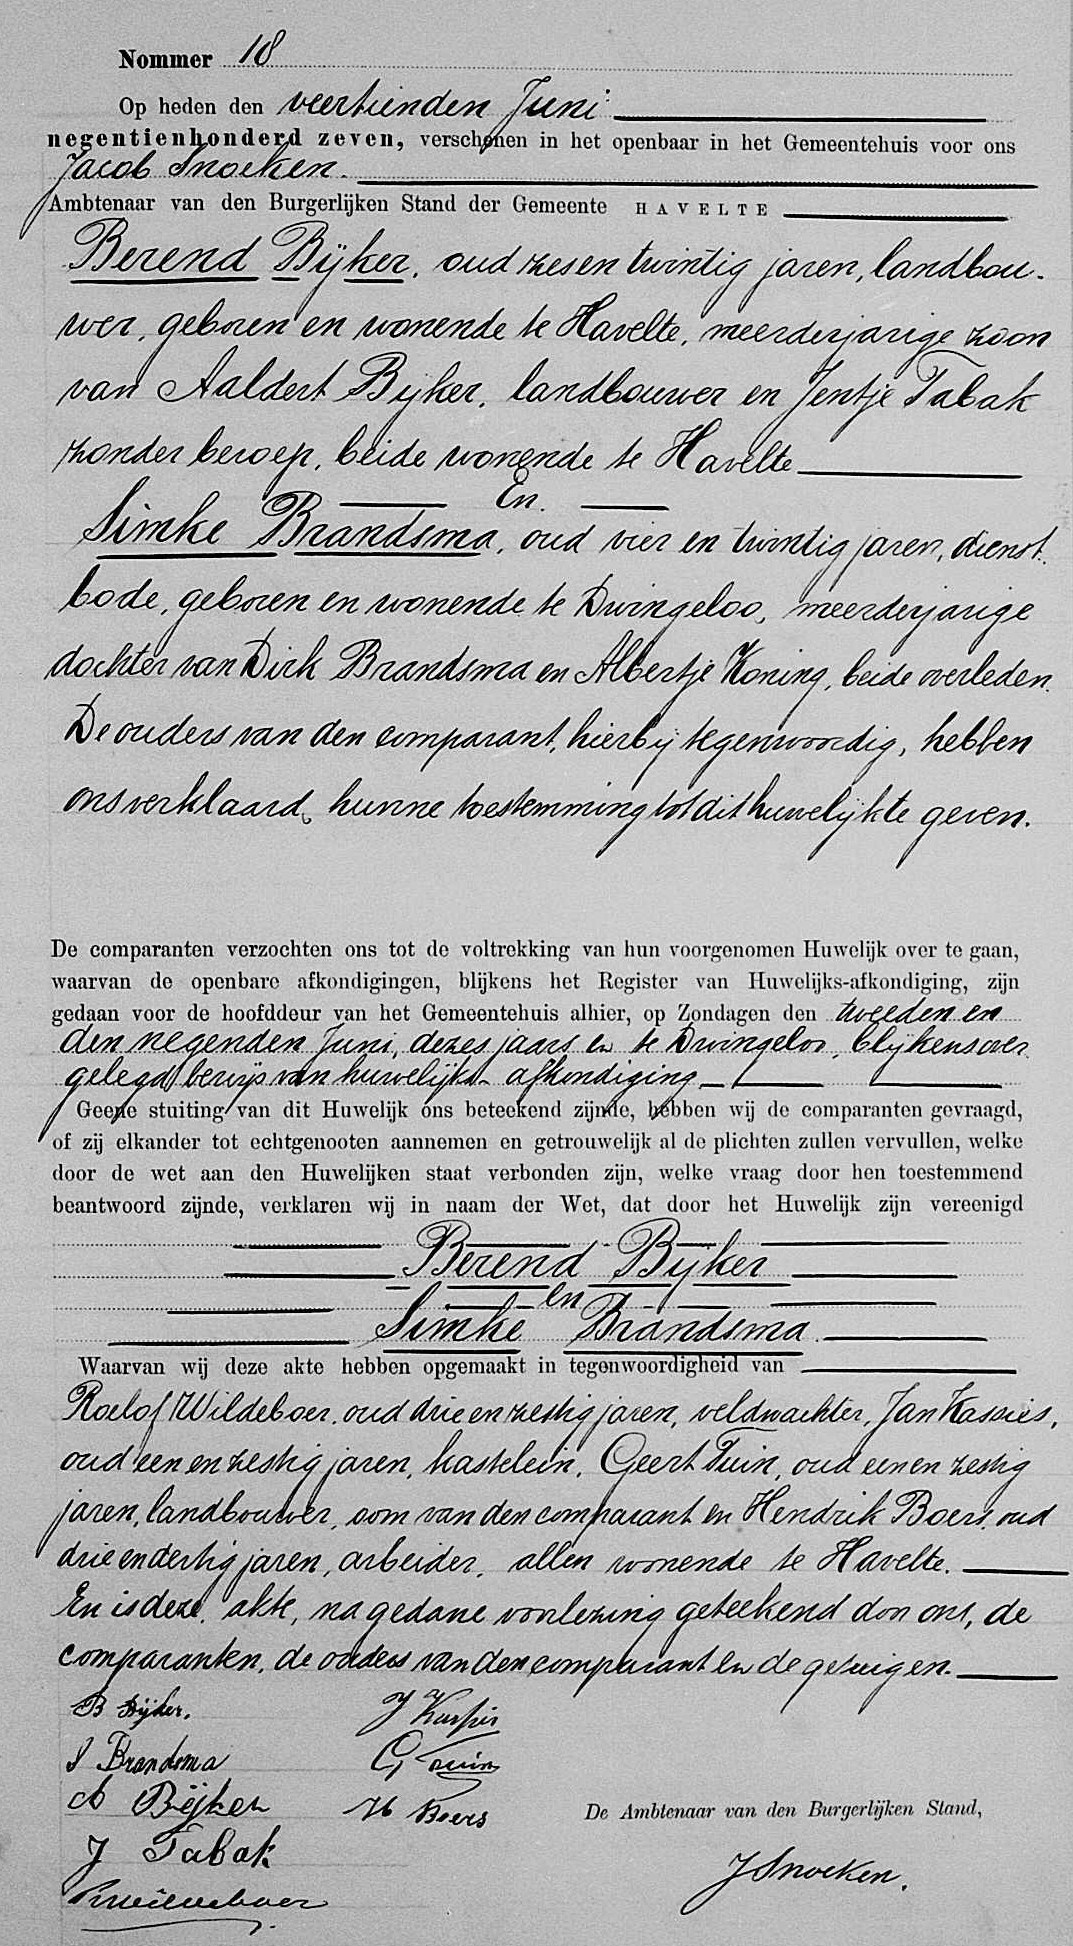 Nommer 18
Op heden den veertienden Juni
negentienhonderd zeven, verschenen in het openbaar in het Gemeentehuis voor ons
Jacob Snoeken.
Ambtenaar van den Burgerlijken Stand der Gemeente HAVELTE
Berend Bijker, oud zesentwintig jaren, landbou-
wer, geboren en wonende te Havelte, meerderjarige zoon
van Aaldert Bijker, landbouwer en Jentje Tabak
zonder beroep, beide wonende te Havelte
En
Simke Brandsma, oud vier en twintig jaren, dienst-
bode, geboren en wonende te Dwingeloo, meerderjarige
dochter van Dirk Brandsma en Albertje Koning, beide overleden.
De ouders van den comparant, hierbij tegenwoordig, hebben
ons verklaard, hunne toestemming tot dit huwelijk te geven.
De comparanten verzochten ons tot de voltrekking van hun voorgenomen Huwelijk over te gaan,
waarvan de openbare afkondigingen, blijkens het Register van Huwelijks-afkondiging, zijn
gedaan voor de hoofddeur van het Gemeentehuis alhier, op Zondagen den tweeden en
den negenden Juni, dezes jaars en te Dwingeloo, blijkens over
gelegd bewijs van huwelijks-afkondiging
Geene stuiting van dit Huwelijk ons beteekend zijnde, hebben wij de comparanten gevraagd,
of zij elkander tot echtgenooten aannemen en getrouwelijk al de plichten zullen vervullen, welke
door de wet aan den Huwelijken staat verbonden zijn, welke vraag door hen toestemmend
beantwoord zijnde, verklaren wij in naam der Wet, dat door het Huwelijk zijn vereenigd
Berend Bijker
en
Simke Brandsma
Waarvan wij deze akte hebben opgemaakt in tegenwoordigheid van
Roelof Wildeboer, oud drie en zestig jaren, veldwachter, Jan Kassies,
oud een en zestig jaren, kastelein, Geert Tuin, oud een en zestig
jaren, landbouwer, oom van den comparant en Hendrik Boers, oud
drie en dertig jaren, arbeider, allen wonende te Havelte.
En is deze akte, na gedane voorlezing geteekend door ons, de
comparanten, de ouders van den comparant en de getuigen.
B Bijker.
S Brandsma
A Bijker
J Tabak
R Wildeboer
J Kassies
G Tuin
H Boers
De Ambtenaar van den Burgerlijken Stand,
J Snoeken.